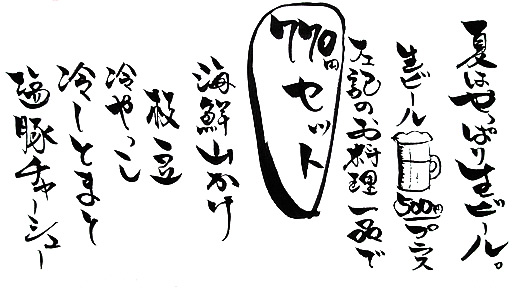 夏はやっぱり生ビール。
生ビール500円プラス
左記のお料理一品で
770円セット
海鮮山かけ
枝豆
冷やっこ
冷しとまと
塩豚チャーシュー